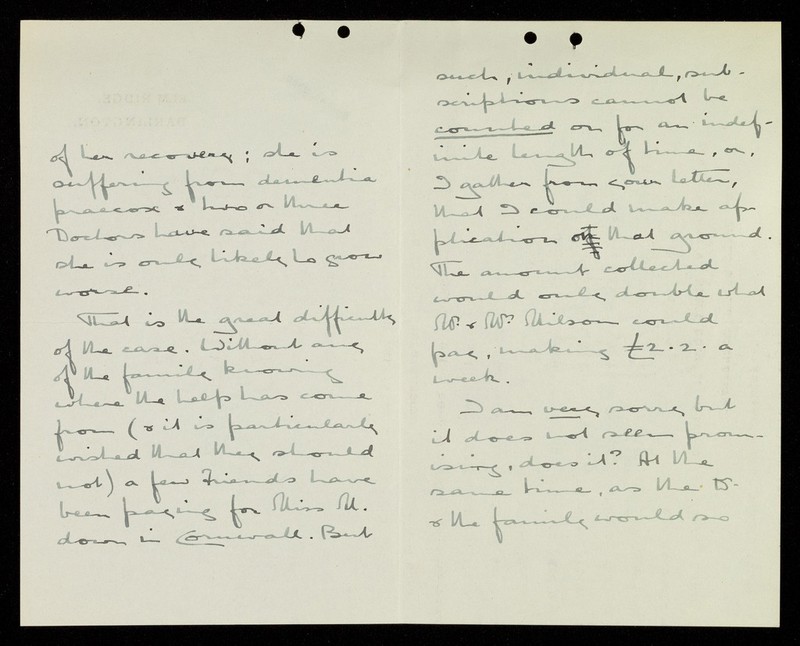 of her recovery; she is
suffering from dementia
praecox & two or three
Doctors have said that
she is only likely to grow
worse.
That is the great difficulty
of the case. Without any
of the family knowing
where the help has come
from (& it is particularly
wished that they should
not) a few Friends have
been paying for Miss M.
down in Cornwall. But
such, individual, sub-
scriptions cannot be
counted on for an indef-
inite length of time, or,
I gather from your letter,
that I could make ap-
plication on that ground.
The amount collected
would only double what
Mr. & Mrs. Milsom could
pay, making £2.2. a
week.
I am very sorry but
it does not seem prom-
ising, does it? At the
same time, as the Dr.
& the family would so